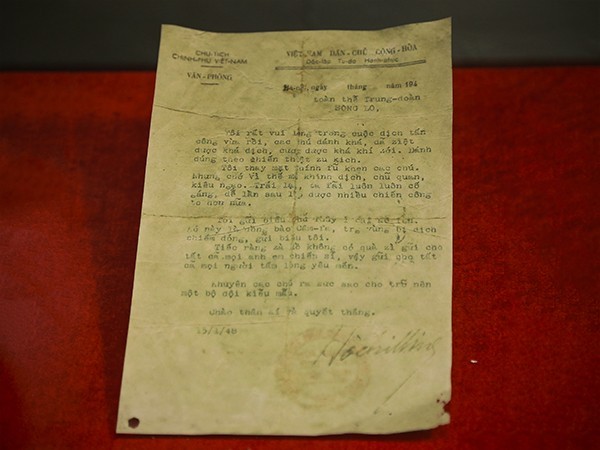 CHỦ-TỊCH
CHÍNH-PHỦ VIỆT-NAM
VĂN-PHÒNG
VIỆT-NAM DÂN-CHỦ CỘNG-HÒA
Độc-lập Tự-do Hạnh-phúc
ngày tháng năm 194
toàn thể Trung-đoàn
SÔNG LÔ,
Tôi rất vui lòng trong cuộc địch tấn
công vừa rồi, các chú đánh khá, để diệt
được khá địch, cướp được khá khí giới. Đánh
đúng theo chiến thuật du kích.
Tôi thay mặt Chính fủ khen các chú.
Nhưng chớ vì thế mà khinh địch, chủ quan,
kiêu ngạo. Trái lại, ta fải luôn luôn cố
gắng, để lần sau lập được nhiều chiến công
to hơn nữa.
Tôi gửi biếu chú 1 cái
này là đồng bào trg vùng bị địch
chiếm đóng, gửi biếu tôi.
Tiếc rằng không có quà gì gửi cho
tất cả mọi anh em chiến sĩ, vậy gửi cho tất
cả mọi người tấm lòng yêu mến.
Khuyên các chú ra sức sao cho trở nên
một bộ đội kiểu mẫu.
Chào thân ái và quyết thắng.